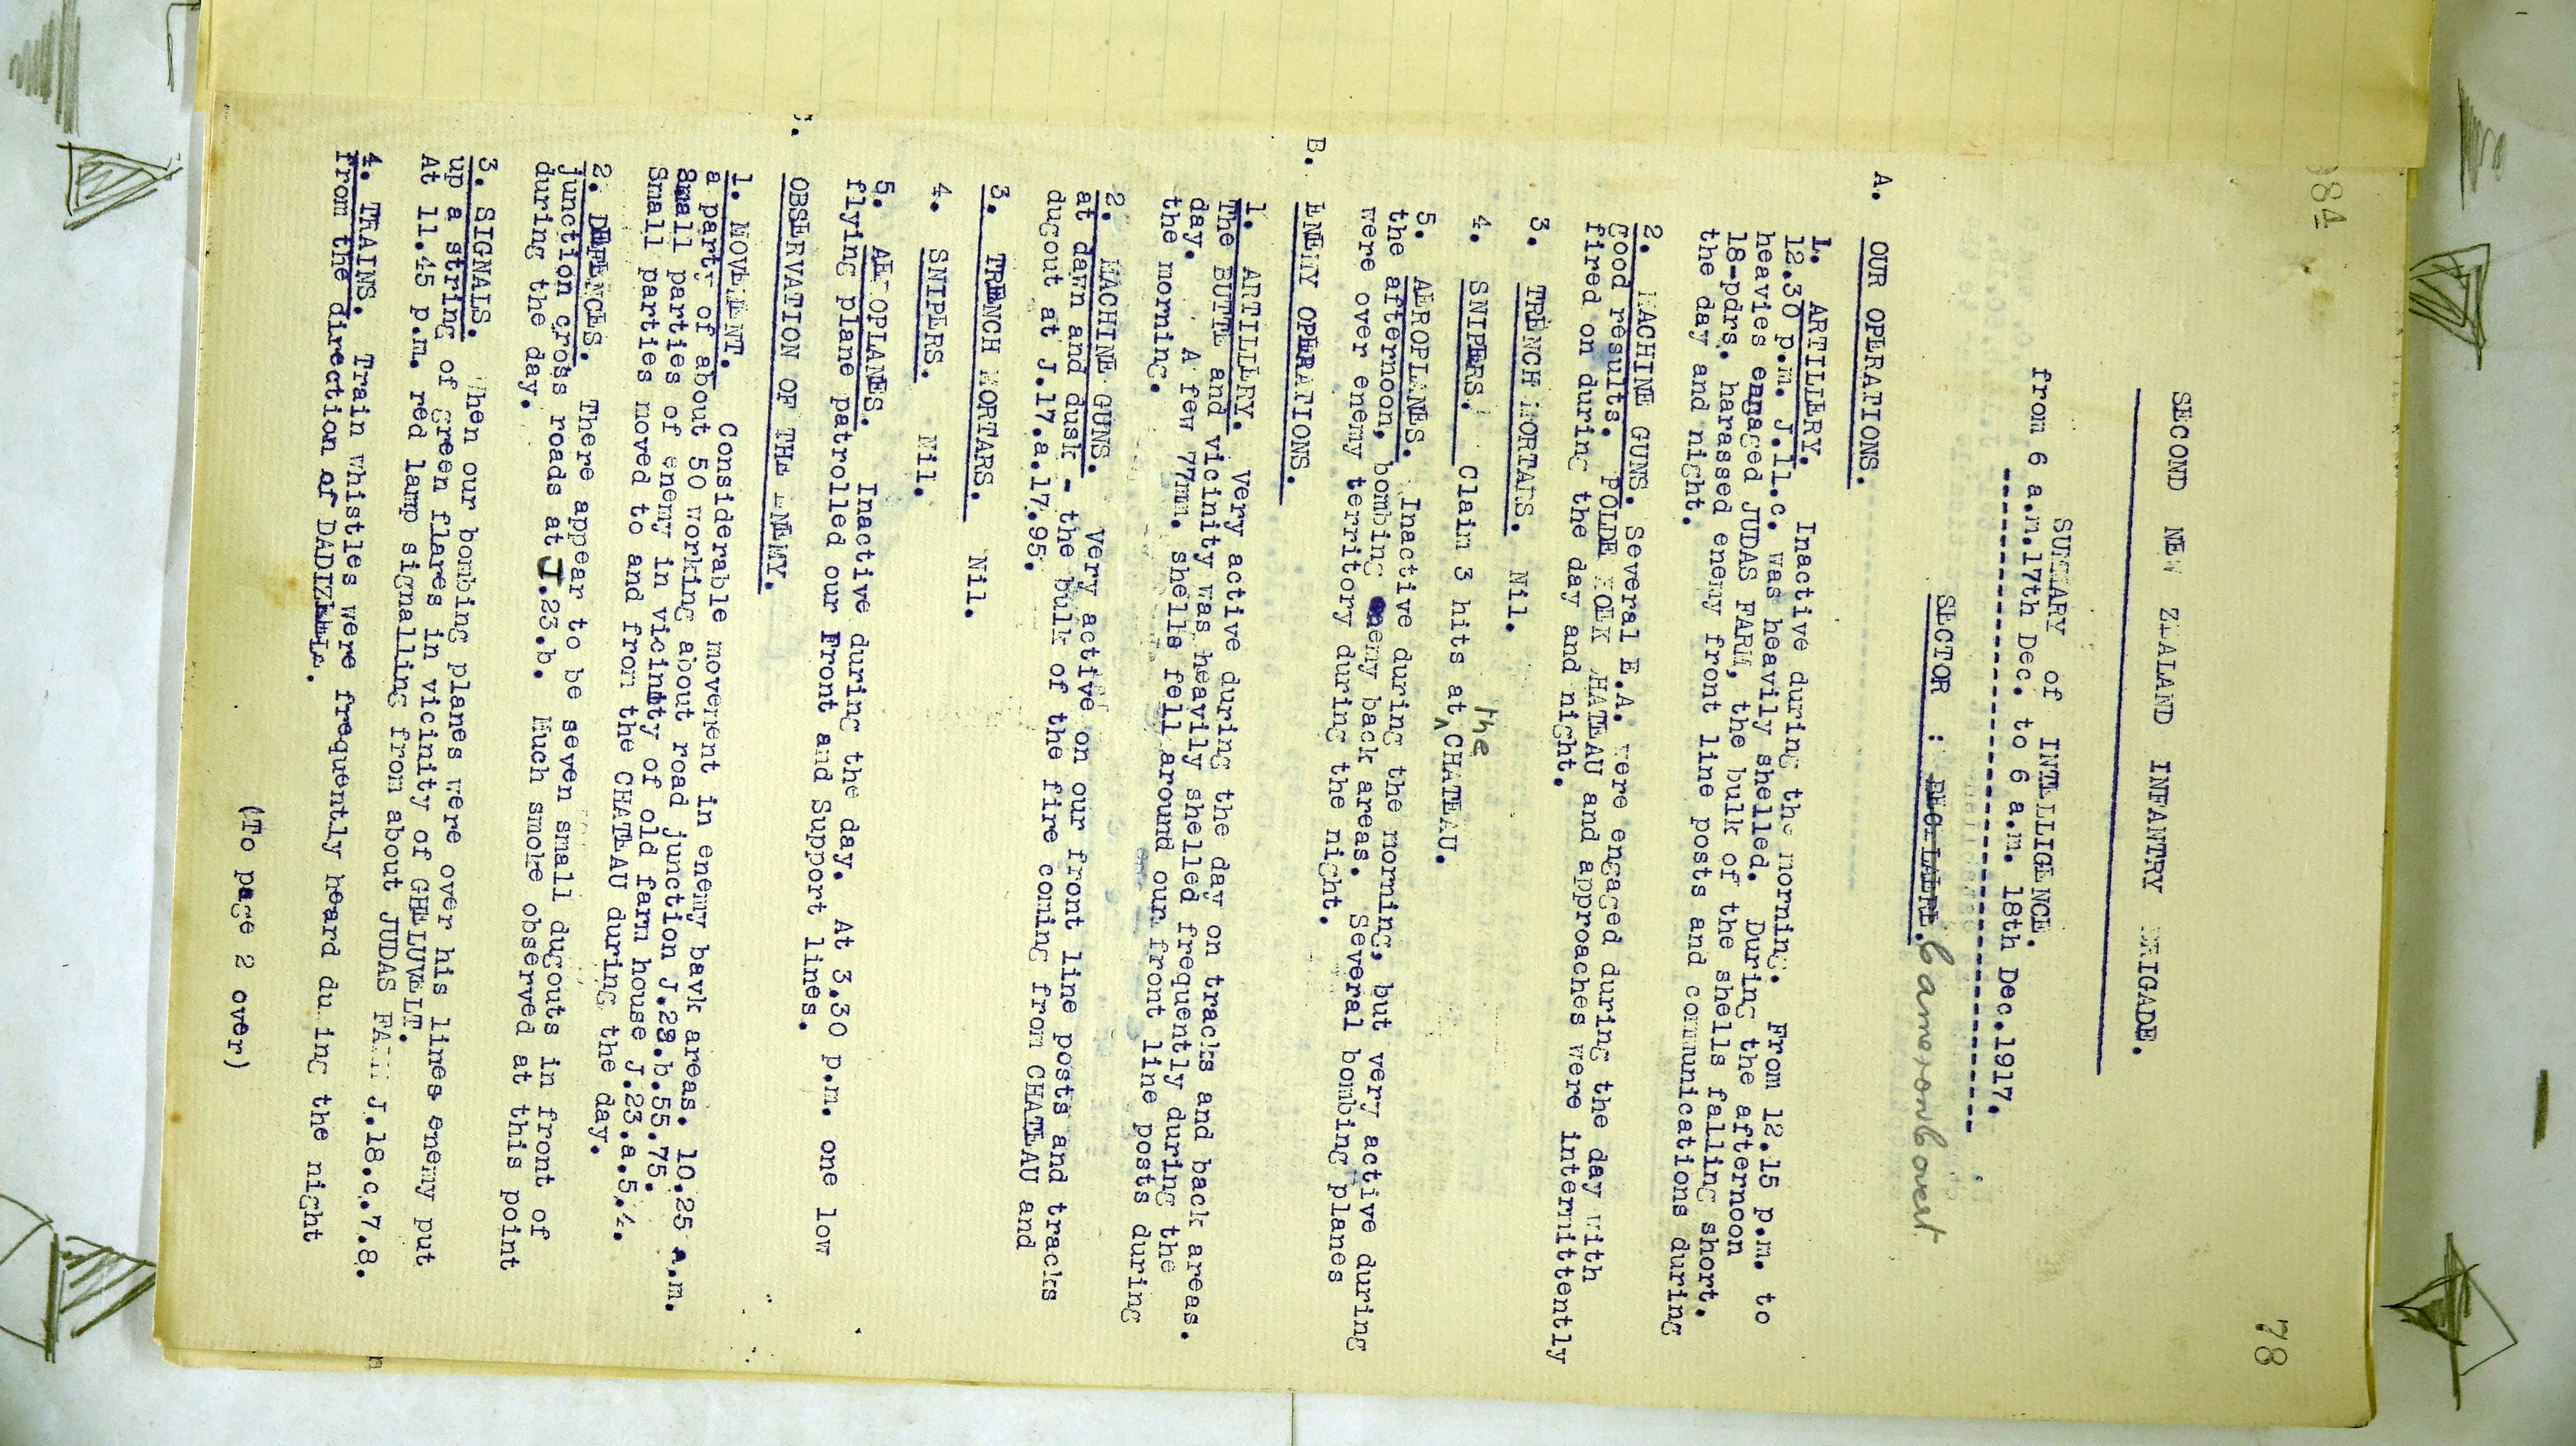 984
78
SECOND NEW ZEALAND INFANTRY BRIGADE.
SUMMARY of INTELLIGENCE.
from 6 a.m.17th Dec. to 6 a.m. 18th Dec.1917.
SECTOR : BECELAERE. Cameron Covert
A. OUR OPERATIONS.
1. ARTILLERY. Inactive during the morning. From 12.15 p.m. to
12.30 p.m. J.11.c. was heavily shelled. During the afternoon
heavies engaged JUDAS FARM, the bulk of the shells falling short.
18-pdrs. harassed enemy front line posts and communications during
the day and night.
2. MACHINE GUNS. Several E.A. were engaged during the day with
good results. POLDERHOEK CHATEAU and approaches were intermittently
fired on during the day and night.
3. TRENCH MORTARS. Nil.
4. SNIPERS. Claim 3 hits at the CHATEAU.
5. AEROPLANES. Inactive during the morning, but very active during
the afternoon, bombing enemy back areas. Several bombing planes
were over enemy territory during the night.
B. ENEMY OPERATIONS.
1. ARTILLERY. Very active during the day on tracks and back areas.
The BUTTE and vicinity was heavily shelled frequently during the
day. A few 77mm. shells fell around our front line posts during
the morning.
2. MACHINE GUNS. Very active on our front line posts and tracks
at dawn and dusk - the bulk of the fire coming from CHATEAU and
dugout at J.17.a.17.95.
3. TRENCH MORTARS. Nil.
4. SNIPERS. Nil.
5. AEROPLANES. Inactive during the day. At 3.30 p.m. one low
flying plane patrolled our Front and Support lines.
C. OBSERVATION OF THE ENEMY.
1. MOVEMENT. Considerable movement in enemy bavk areas. 10.25 a.m.
a party of about 50 working about road junction J.23.b.55.75.
Small parties of enemy in vicinity of old farm house J.23.a.5.4.
Small parties moved to and from the CHATEAU during the day.
2. DEFENCES. There appear to be seven small dugouts in front of
junction cross roads at J.23.b. Much smoke observed at this point
during the day.
3. SIGNALS. When our bombing planes were over his lines enemy put
up a string of green flares in vicinity of GHELUVELT.
At 11.45 p.m. red lamp signalling from about JUDAS FARM J.18.c.7.8.
4. TRAINS. Train whistles were frequently heard du ing the night
from the direction of DADIZEELE.
(To page 2 over)